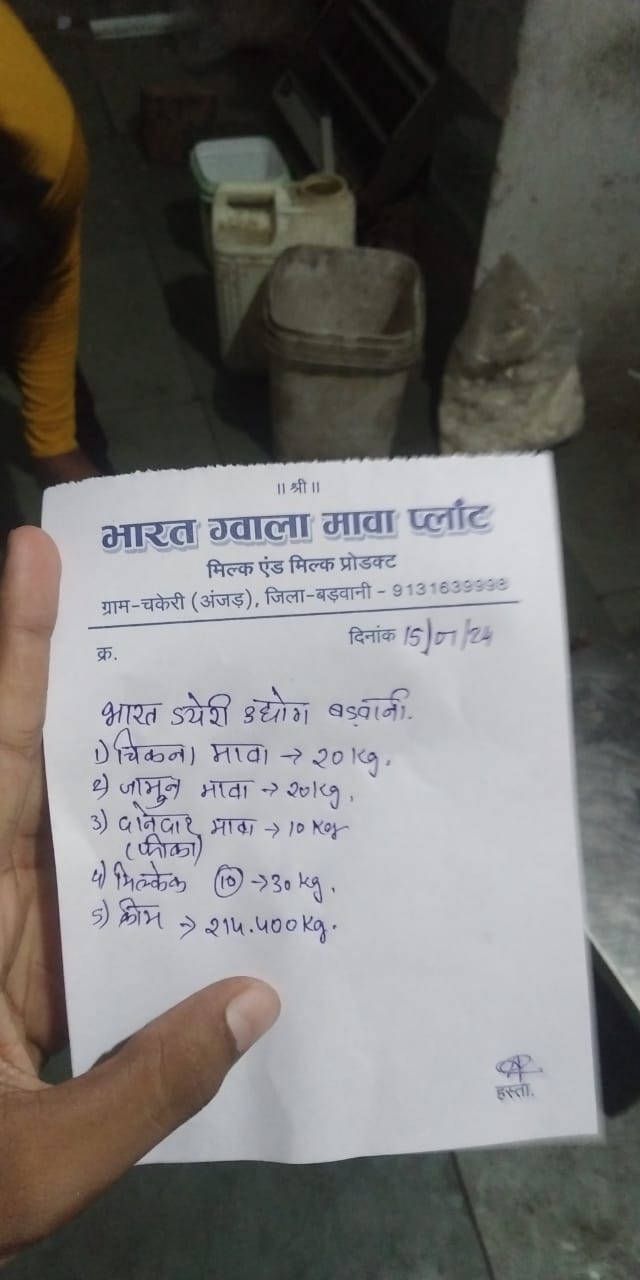 ॥ श्री ॥
भारत ग्वाला मावा प्लांट
मिल्क एंड मिल्क प्रोडक्ट
ग्राम-चकेरी (अंजड़), जिला-बड़वानी - 9131639998
क्र. दिनांक 15/07/24
भारत डयेरी उद्योग बड़वानी.
1) चिकना मावा → 20 kg.
2) जामुन मावा → 20 kg.
3) दानेदार मावा → 10 kg
(फीका)
4) मिल्केक (10) → 30 kg.
5) क्रीम → 214.400 kg.
हस्ता.